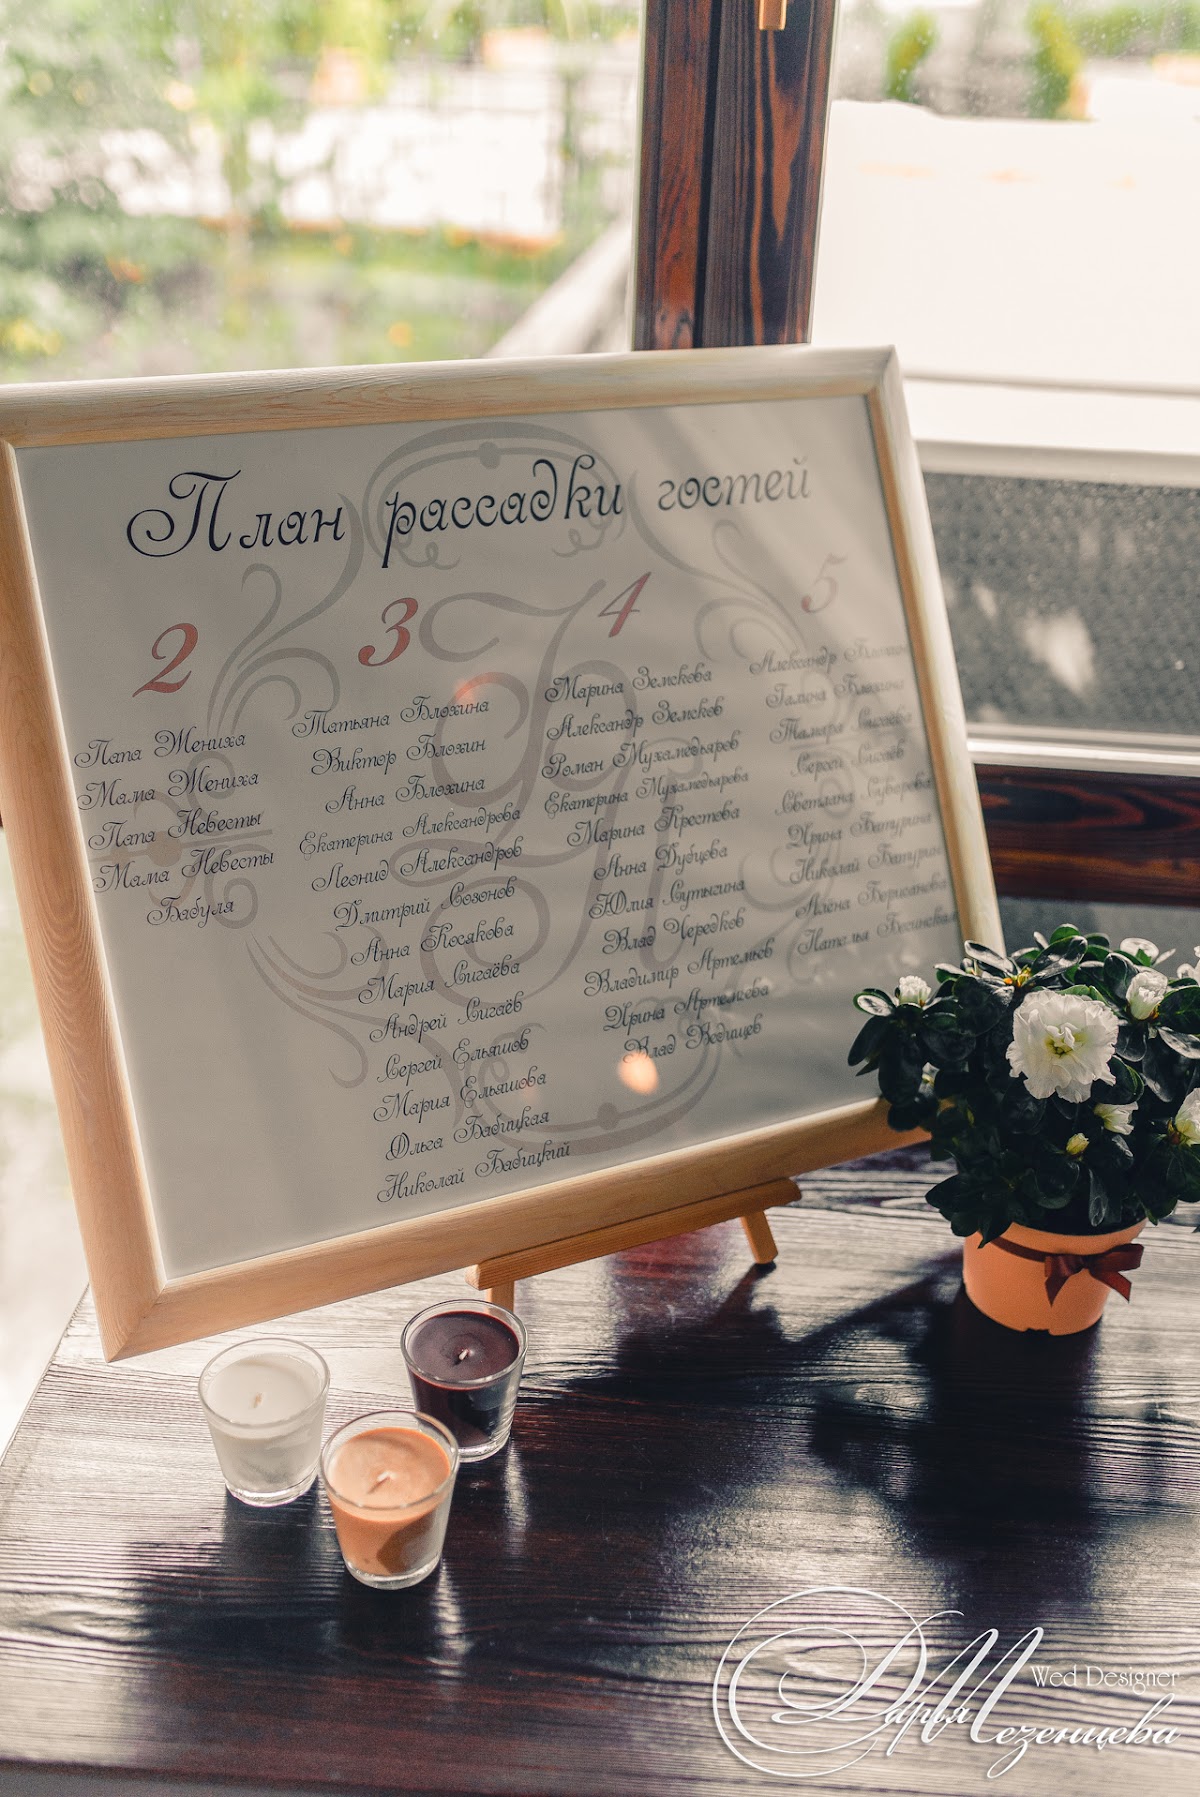 План рассадки гостей
2
Папа Жениха
Мама Жениха
Папа Невесты
Мама Невесты
Бабуля
3
Татьяна Блохина
Виктор Блохин
Анна Блохина
Екатерина Александрова
Леонид Александров
Дмитрий Созонов
Анна Косякова
Мария Сигаёва
Андрей Сигаёв
Сергей Ельяшов
Мария Ельяшова
Ольга Бабицкая
Николай Бабицкий
4
Марина Земскова
Александр Земсков
Роман Мухамедьяров
Екатерина Мухамедьярова
Марина Крестова
Анна Дубцова
Юлия Сутыгина
Влад Чередков
Владимир Артемьев
Ирина Артемьева
Влад Ведищев
5
Александр Блохин
Галина Блохина
Тамара Сигаева
Сергей Сигаев
Светлана Суворова
Ирина Батурина
Николай Батурин
Алёна Борисанова
Наталья
Wed Designer
Дарья Мезенцева